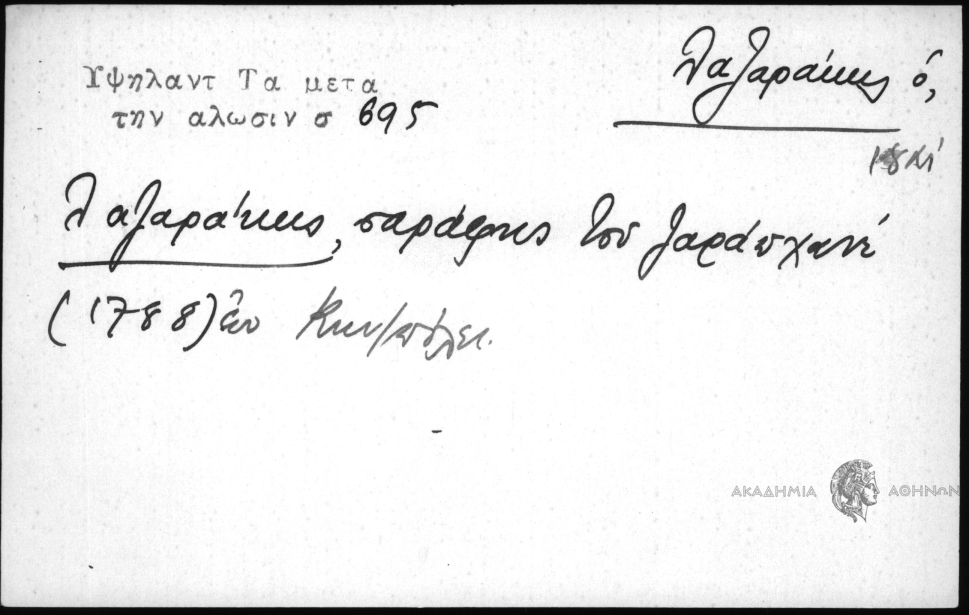 Υψηλαντ Τα μετα
την αλωσιν σ 695
Λαζαράκης ὁ,
Λαζαράκης, σαράφης του ζαράπχανέ
(1788) ἐν Κων/πόλει.
ΑΚΑΔΗΜΙΑ ΑΘΗΝΩΝ